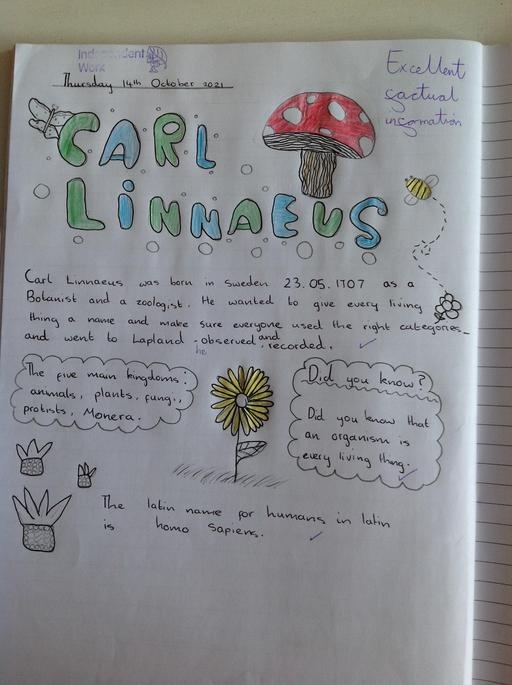 Independent
Work
Thursday 14th October 2021
Excellent
factual
information
CARL
LINNAEUS
Carl Linnaeus was born in Sweden 23.05.1707 as a
Botanist and a zoologist. He wanted to give every living
thing a name and make sure everyone used the right categories
and went to Lapland he observed and recorded.
The five main kingdoms:
animals, plants, fungi,
protists, Monera.
Did you know?
Did you know that
an organism is
every living thing.
The latin name for humans in latin
is homo sapiens.